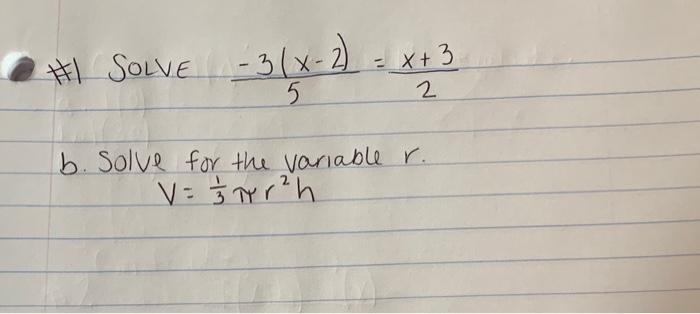 #1 SOLVE -3(x-2)/5 = x+3/2
b. Solve for the variable r.
V = 1/3 πr²h